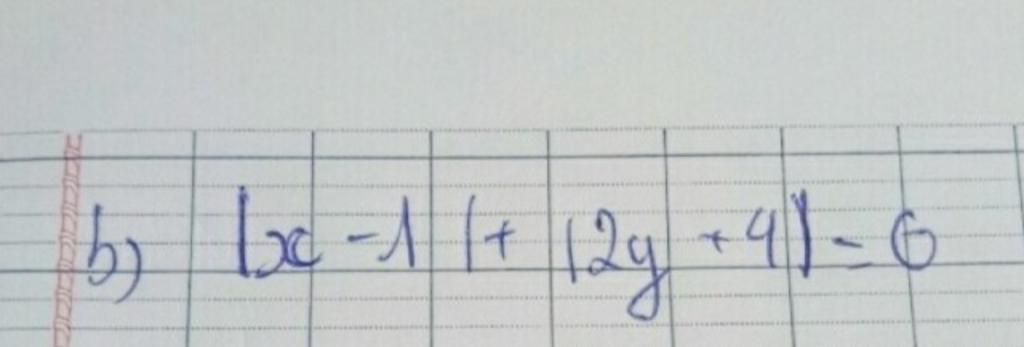 b) |x - 1| + |2y + 4| = 6